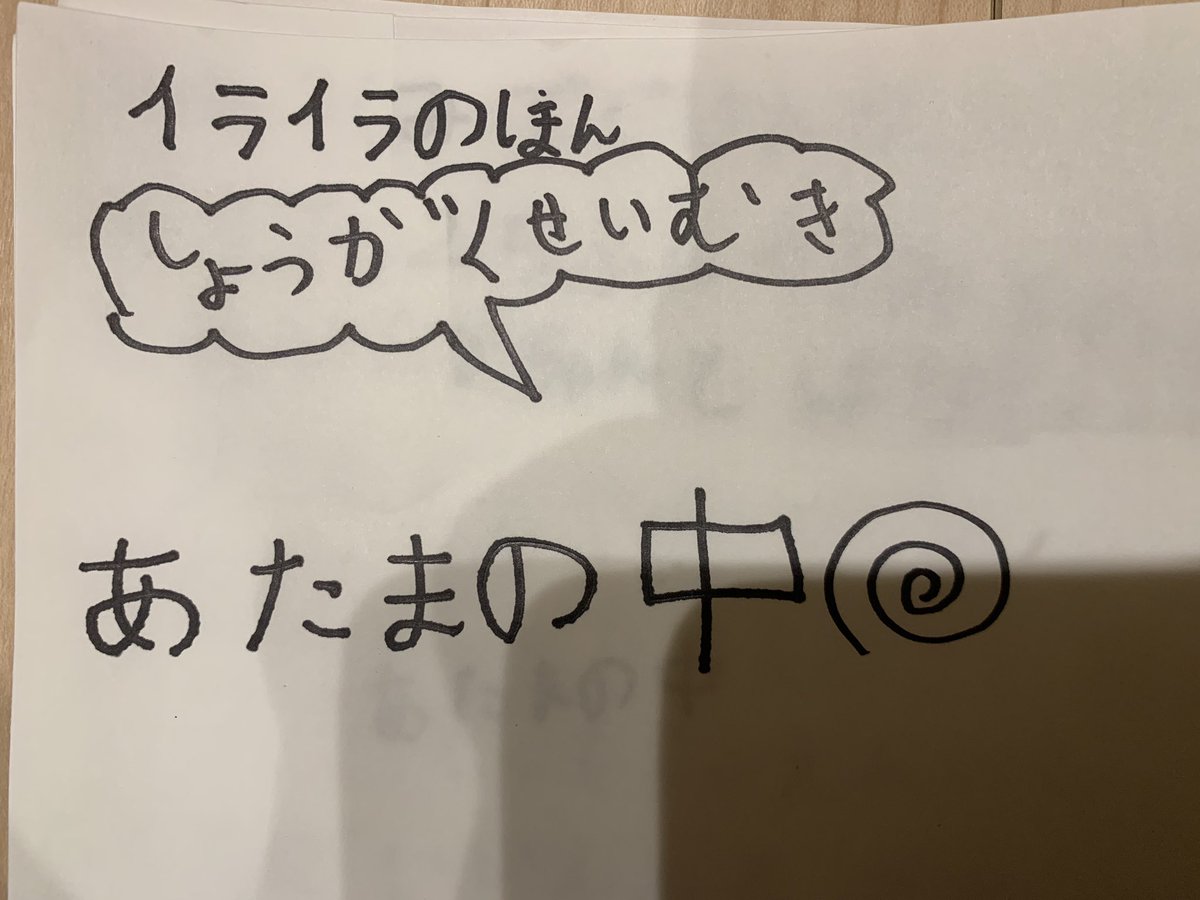 イライラのほん
しょうがくせいむき
あたまの中